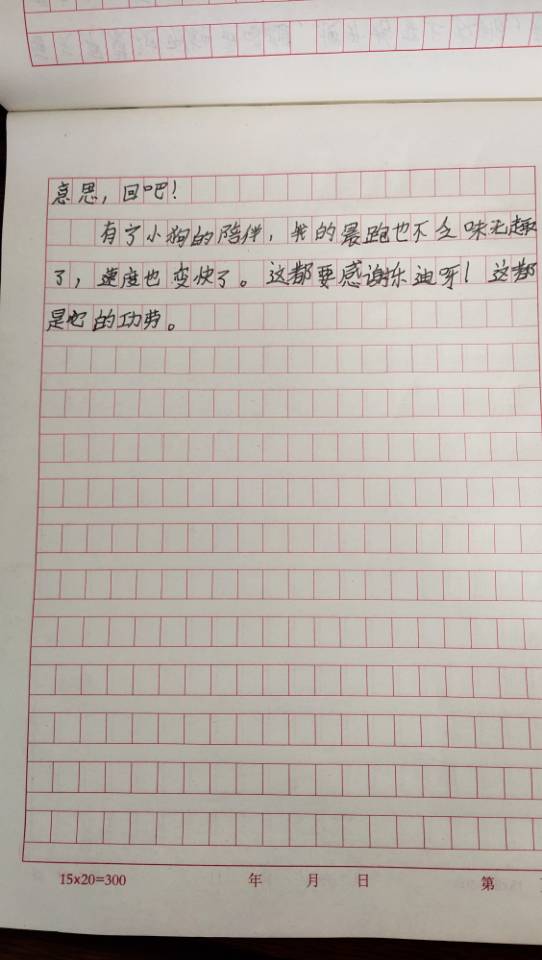 意思，回吧！
有了小狗的陪伴，我的晨跑也不么味无趣
了，速度也变快了。这都要感谢乐迪呀！这都
是它的功劳。
15×20=300 年 月 日 第